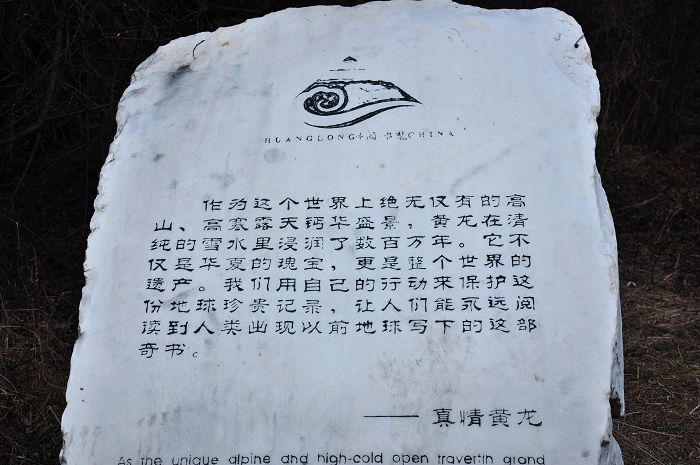 HUANGLONG中国·黄龙CHINA
作为这个世界上绝无仅有的高
山、高寒露天钙华盛景，黄龙在清
纯的雪水里浸润了数百万年。它不
仅是华夏的瑰宝，更是整个世界的
遗产。我们用自己的行动来保护这
份地球珍贵记录，让人们能永远阅
读到人类出现以前地球写下的这部
奇书。
——真情黄龙
As the unique alpine and high-cold open travertin grand